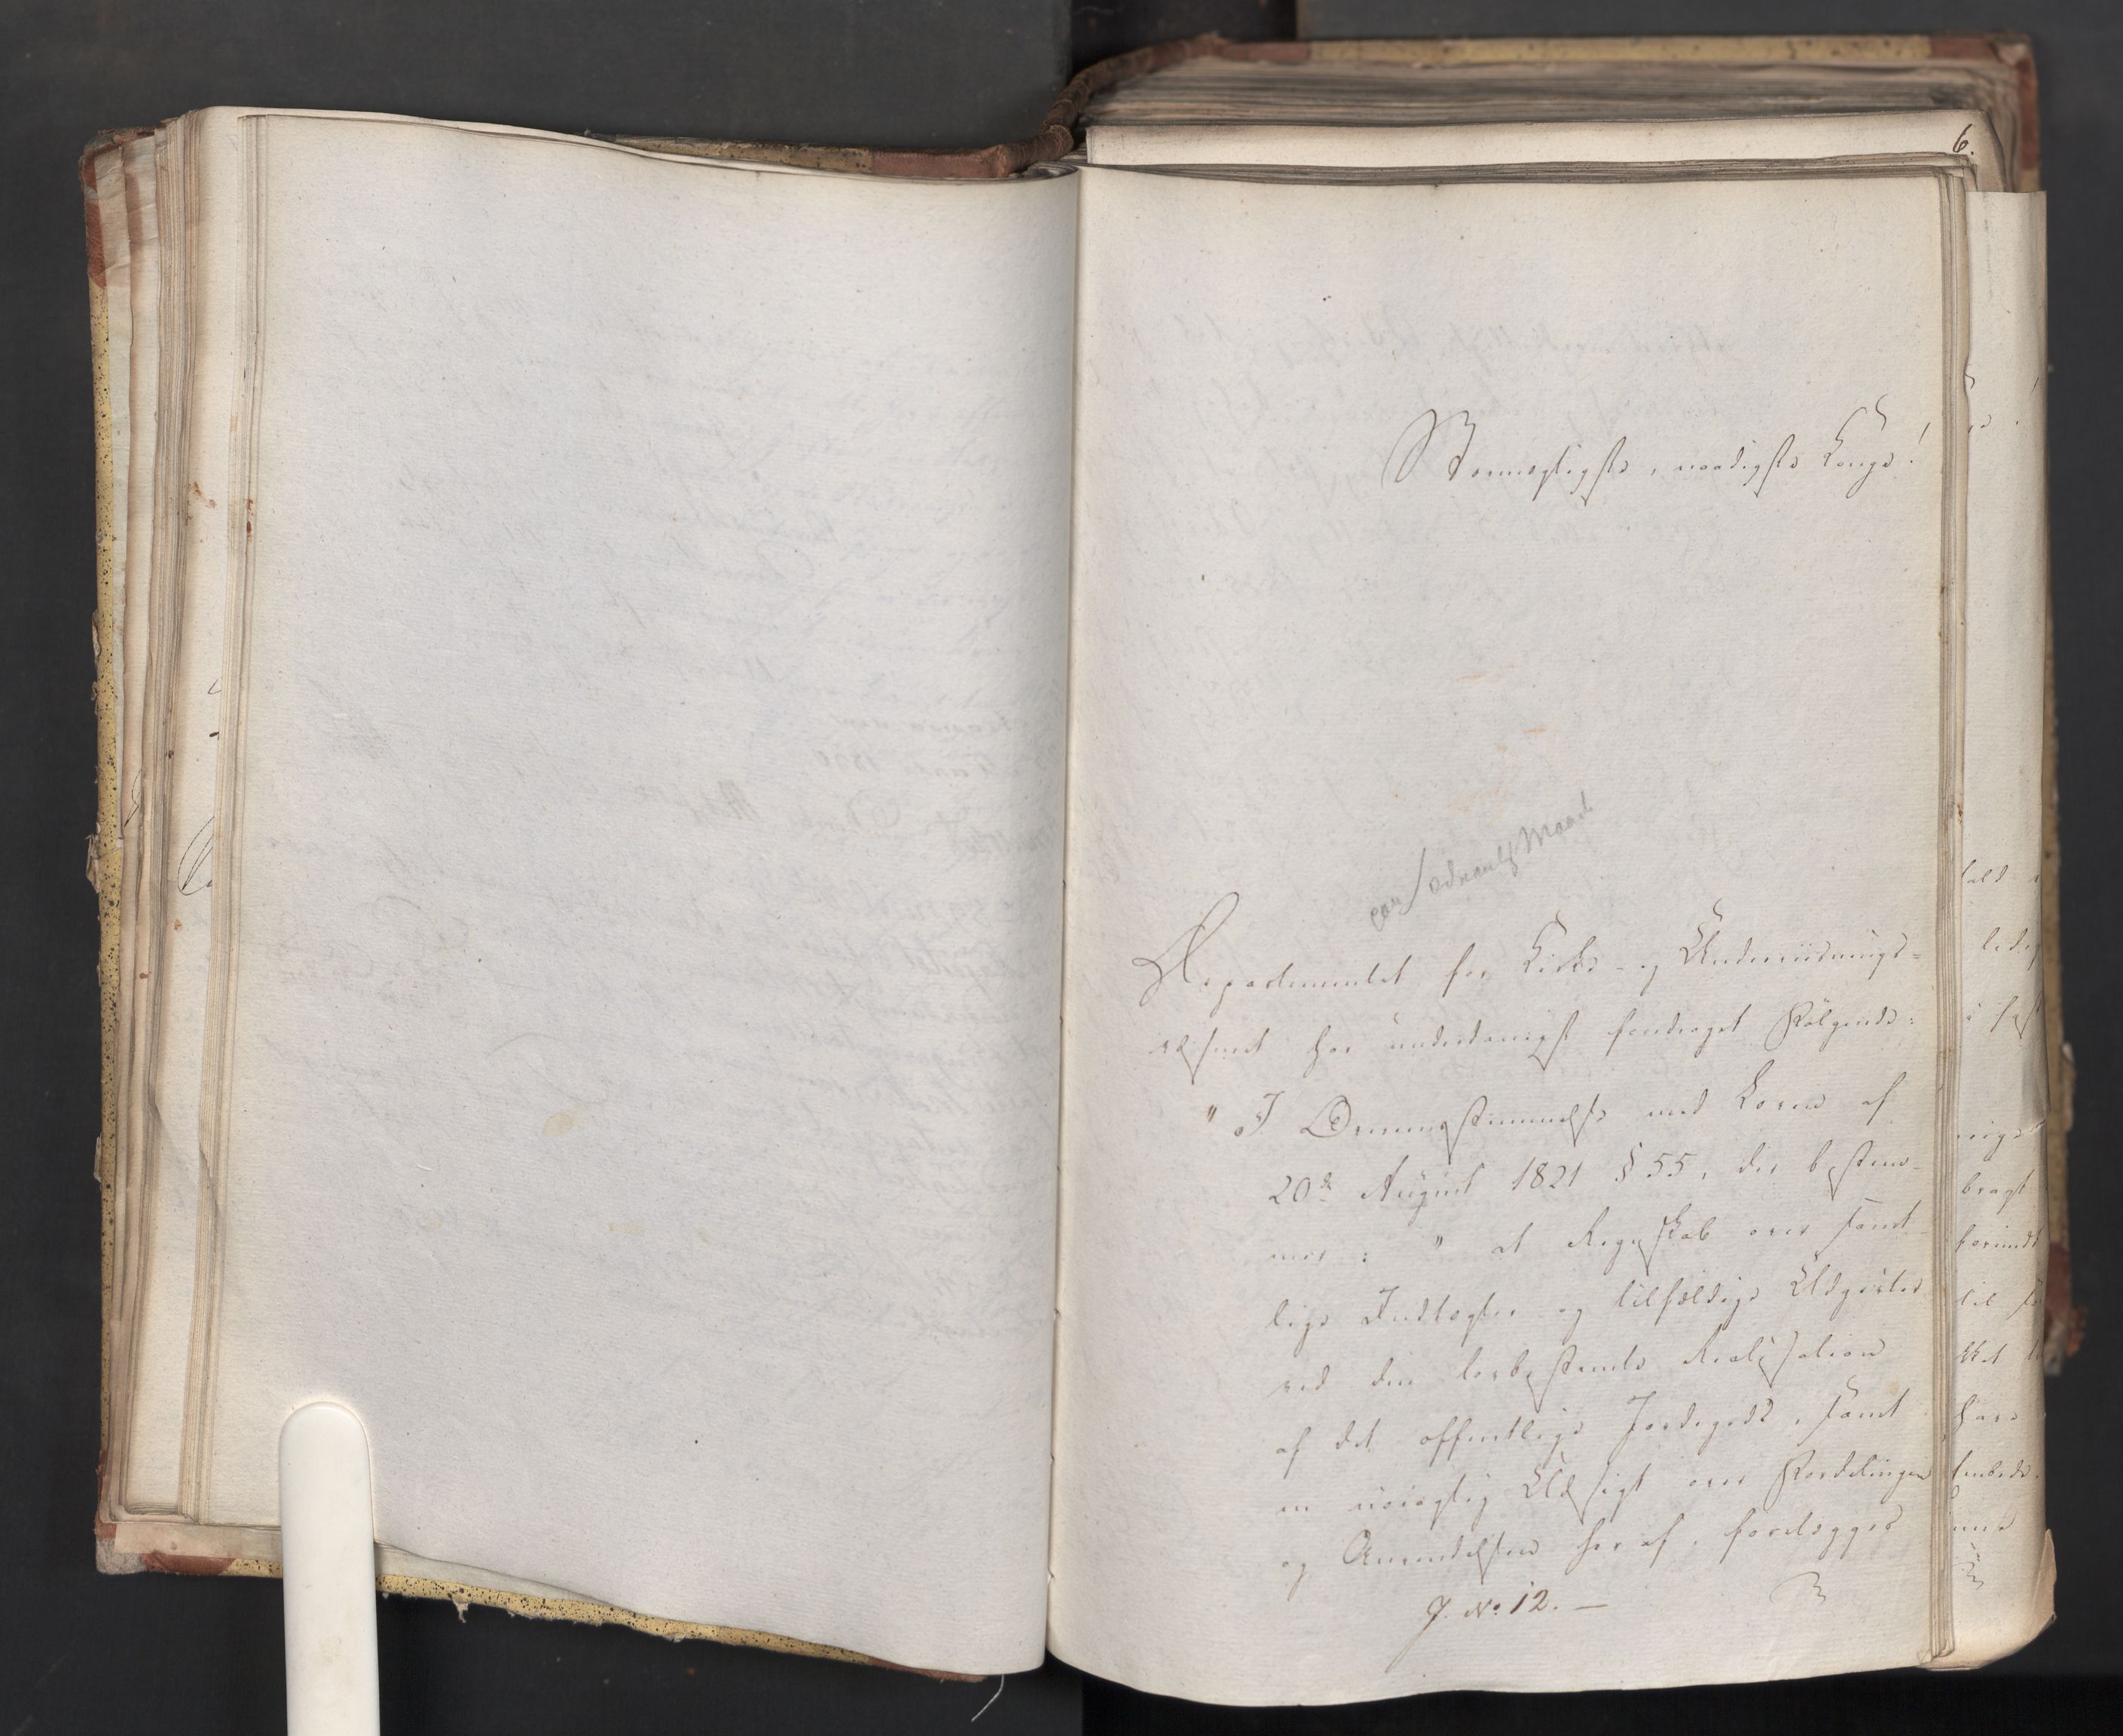 6.
Stormægtigste, naadigste Konge!
Departementet for Kirke- og Underviisnings-
væsenet har underdanigst foredraget Følgende:
" I Overeensstemmelse med Loven af
20de August 1821 § 55, der bestem-
mer: " at Regnskab over samt-
lige Indtægter og tilfældige Udgivter
ved den lovbestemte Realisation
af det offentlige Jordegods, samt
en nøiagtig Udsigt over Fordelingen
og Anvendelsen heraf, forelægges
J. No. 12. —